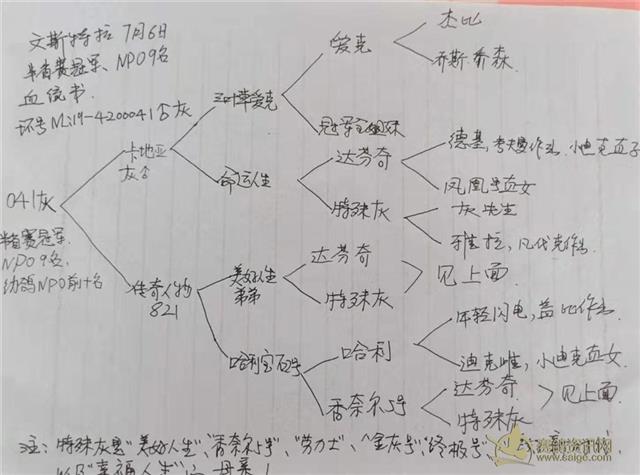 文斯特拉 7月6日
半省赛冠军、NPO9名
血统书.
环号Mi19-4200041白灰
三叶草爱克
爱克
杰比
乔斯 托森
冠军宝姐妹
卡地亚
灰白
命运人生
达芬奇
德基,考夫曼作出.小迪克直子
凤凰号直女
特殊灰
灰先生
雅拉,凡代克作出.
041灰
半省赛冠军.
NPO9名.
幼鸽NPO前十名
传奇人物
821
美好人生
弟弟
达芬奇
特殊灰
见上面.
哈利宝石号
哈利
年轻闪电,盖比作出.
迪克雌,小迪克直女.
香奈尔5号
达芬奇
特殊灰
见上面.
注:特殊灰是"美好人生"、"香奈尔5号"、"劳力士"、"金灰号"、终极号、
以及"幸福人生"之母亲!
赛鸽资讯网
www.saige.com